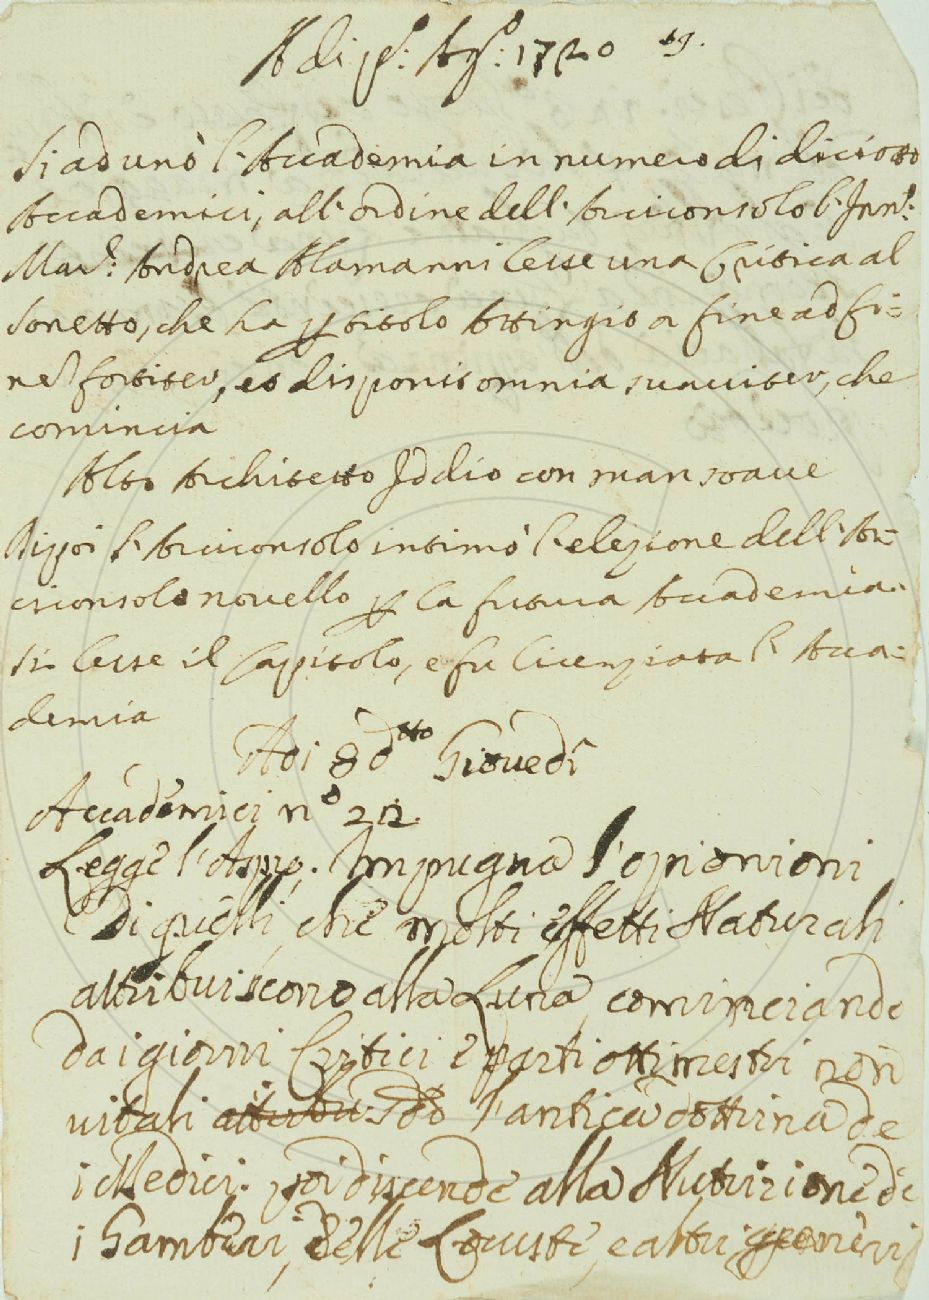 A di p.º Ag.º 1720 19.
Si adunò l'Accademia in numero di diciotto
Accademici, all'ordine dell'Arciconsolo l'Inn.º
Mar.º: Andrea Alamanni lesse una Critica al
sonetto, che ha p titolo Attingit a fine ad fi=
ne fortiter, et disponit omnia suaviter, che
comincia
Alto Architetto Iddio con man soave
Dipoi l'Arciconsolo intimò l'elezione dell'Ar=
ciconsolo novello p la futura Accademia.
si lesse il Capitolo, e fu licenziata l'Acca=
demia
Adi 8 dtto Giovedì
Accademici nº 22.
Legge l'Aspro. Impugna l'opinioni
di quelli, che molti effetti Naturali
attribuiscono alla Luna, cominciando
da i giorni Critici e parti ottimestri non
vitali l'antica dottrina de
i Medici. poi discende alla Nutrizione de
i Gamberi, delle Locuste, e altri generi